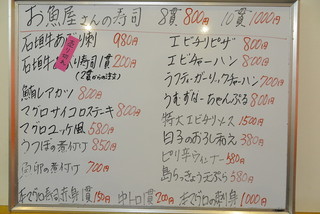 お魚屋さんの寿司 8貫800円 10貫1000円
石垣牛あぶり刺 980円
石垣牛あぶり寿司1貫200円
(2貫からの注文)
鮪レアカツ 800円
マグロサイコロステーキ 800円
マグロユッケ風 580円
うつぼの煮付け 850円
魚卵の煮付け 700円
エビチリピザ 800円
エビチャーハン 800円
ラフティーガーリックチャーハン 700円
うむすなーちゃんぷる 800円
特大エビチリメス 1500円
白子のおろしあえ 380円
ピリ辛ウィンナー 380円
島らっきょう天ぷら 580円
生マグロ 赤身1貫150円 中トロ1貫200円 生マグロの刺身 1000円